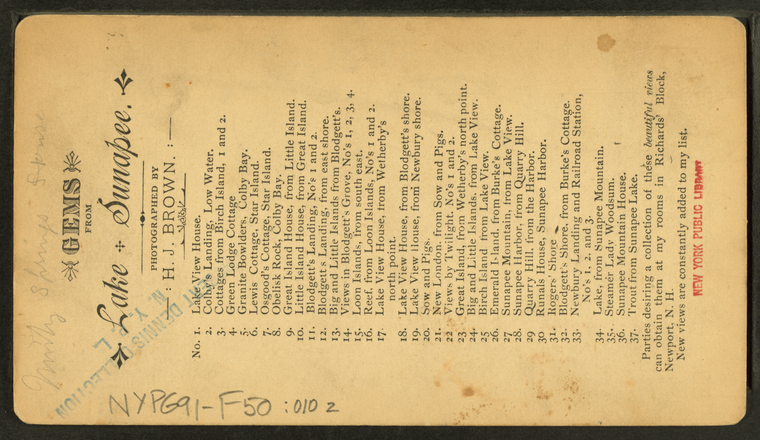 GEMS
FROM
Lake Sunapee.
PHOTOGRAPHED BY
H. J. BROWN.
No. 1. Lake View House.
2. Colby's Landing, Low Water.
3. Cottages from Birch Island, 1 and 2.
4. Green Lodge Cottage
5. Granite Bowlders, Colby Bay.
6. Lewis Cottage, Star Island.
7. Osgood's Cottage, Star Island.
8. Obelisk Rock, Colby Bay.
9. Great Island House, from Little Island.
10. Little Island House, from Great Island.
11. Blodgett's Landing, No's 1 and 2.
12. Blodgett's Landing, from east shore.
13. Big and Little Islands from Blodgett's.
14. Views in Blodgett's Grove, No's 1, 2, 3, 4.
15. Loon Islands, from south east.
16. Reef from Loon Islands, No's 1 and 2.
17. Lake View House, from Wetherby's
north point.
18. Lake View House, from Blodgett's shore.
19. Lake View House, from Newbury shore.
20. Sow and Pigs.
21. New London, from Sow and Pigs.
22 Views by Twilight, No's 1 and 2.
23. Great Island, from Wetherby's north point.
24. Big and Little Islands, from Lake View.
25 Birch Island from Lake View.
26. Emerald Island, from Burke's Cottage.
27 Sunapee Mountain, from Lake View.
28. Sunapee Harbor, from Quarry Hill.
29 Quarry Hill, from the Harbor.
30 Runals House, Sunapee Harbor.
31. Rogers' Shore
32. Blodgett's Shore, from Burke's Cottage.
33. Newbury Landing and Railroad Station,
No's 1, 2 and 3.
34. Lake, from Sunapee Mountain.
35. Steamer Lady Woodsum.
36. Sunapee Mountain House.
37. Trout from Sunapee Lake.
Parties desiring a collection of these beautiful views
can obtain them at my rooms in Richards' Block,
Newport, N. H.
New views are constantly added to my list.
NEW YORK PUBLIC LIBRARY
DENNIS COLLECTION
N. Y. P. L.
NYPG91-F50:010 2